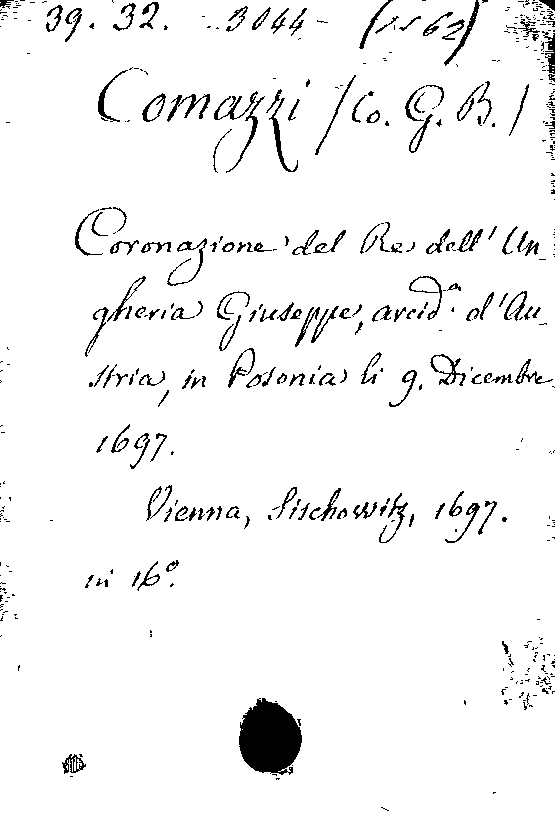 39. 32. 3044 - (1562)
Comazzi /Co. G. B./
Coronazione del Re dell' Un
gheria Giuseppe, arcid.ª d'Au-
stria, in Posonia li 9. Dicembre
1697.
Vienna, Sischowitz, 1697.
in 16º.